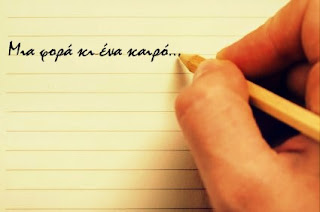 Μια φορά κι ένα καιρό...